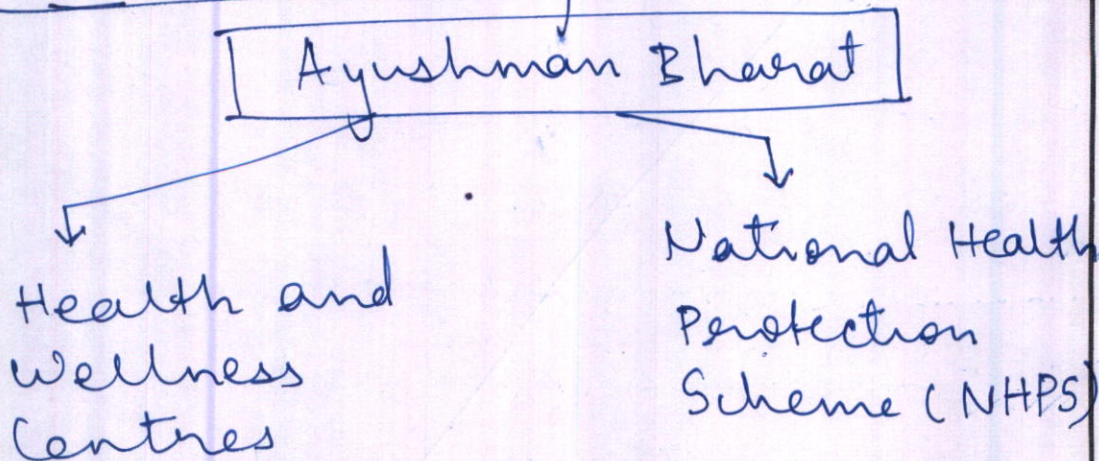 Ayushman Bharat
Health and
Wellness
Centres
National Health
Protection
Scheme (NHPS)